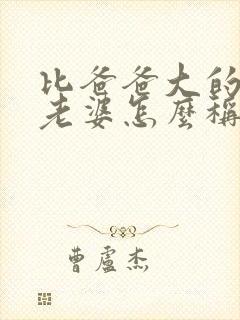 比爸爸大的
老婆怎麼稱
曹盧杰